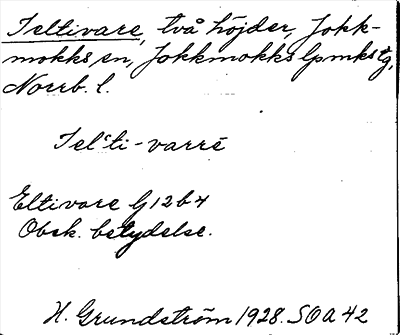 Jeltivare, två höjder, Jokk-
mokks sn, Jokkmokks lpmks tg,
Norrb. l.
Jel'ti-varrē
Eltivare G12b4
Obek. betydelse.
H. Grundström 1928. SOA 42